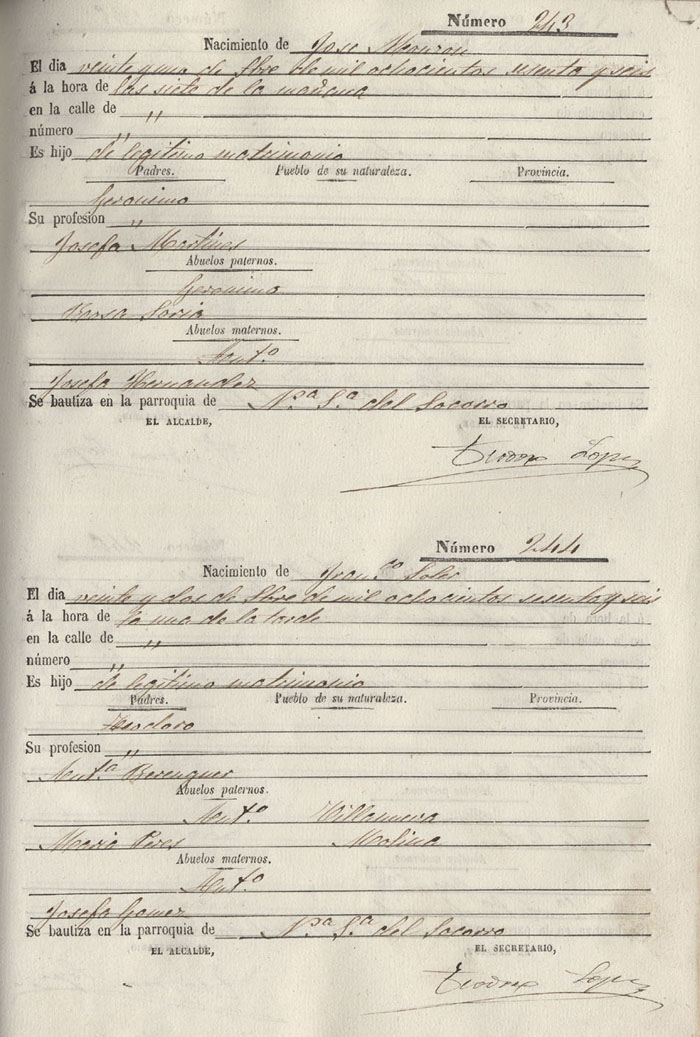 Número 243
Nacimiento de Jose Monzon
El dia veinte y uno de Sbre de mil ochocientos sesenta y seis
á la hora de las siete de la mañana
en la calle de "
número "
Es hijo de legitimo matrimonio
Padres. Pueblo de su naturaleza. Provincia.
Geronimo
Su profesion "
Josefa Martines
Abuelos paternos.
Geronimo
Rosa Soria
Abuelos maternos.
Ant.º
Josefa Hernandez
Se bautiza en la parroquia de N.ª S.ª del Socorro
EL ALCALDE, EL SECRETARIO,
Teodoro Lopez
Número 244
Nacimiento de Fran.co Soler
El dia veinte y dos de Sbre de mil ochocientos sesenta y seis
á la hora de la una de la tarde
en la calle de "
número "
Es hijo de legitimo matrimonio
Padres. Pueblo de su naturaleza. Provincia.
Teodoro
Su profesion "
Ant.ª Berenguer
Abuelos paternos.
Ant.º Villanueva
Maria Peres Molina
Abuelos maternos.
Ant.º
Josefa Gomez
Se bautiza en la parroquia de N.ª S.ª del Socorro
EL ALCALDE, EL SECRETARIO,
Teodoro Lopez